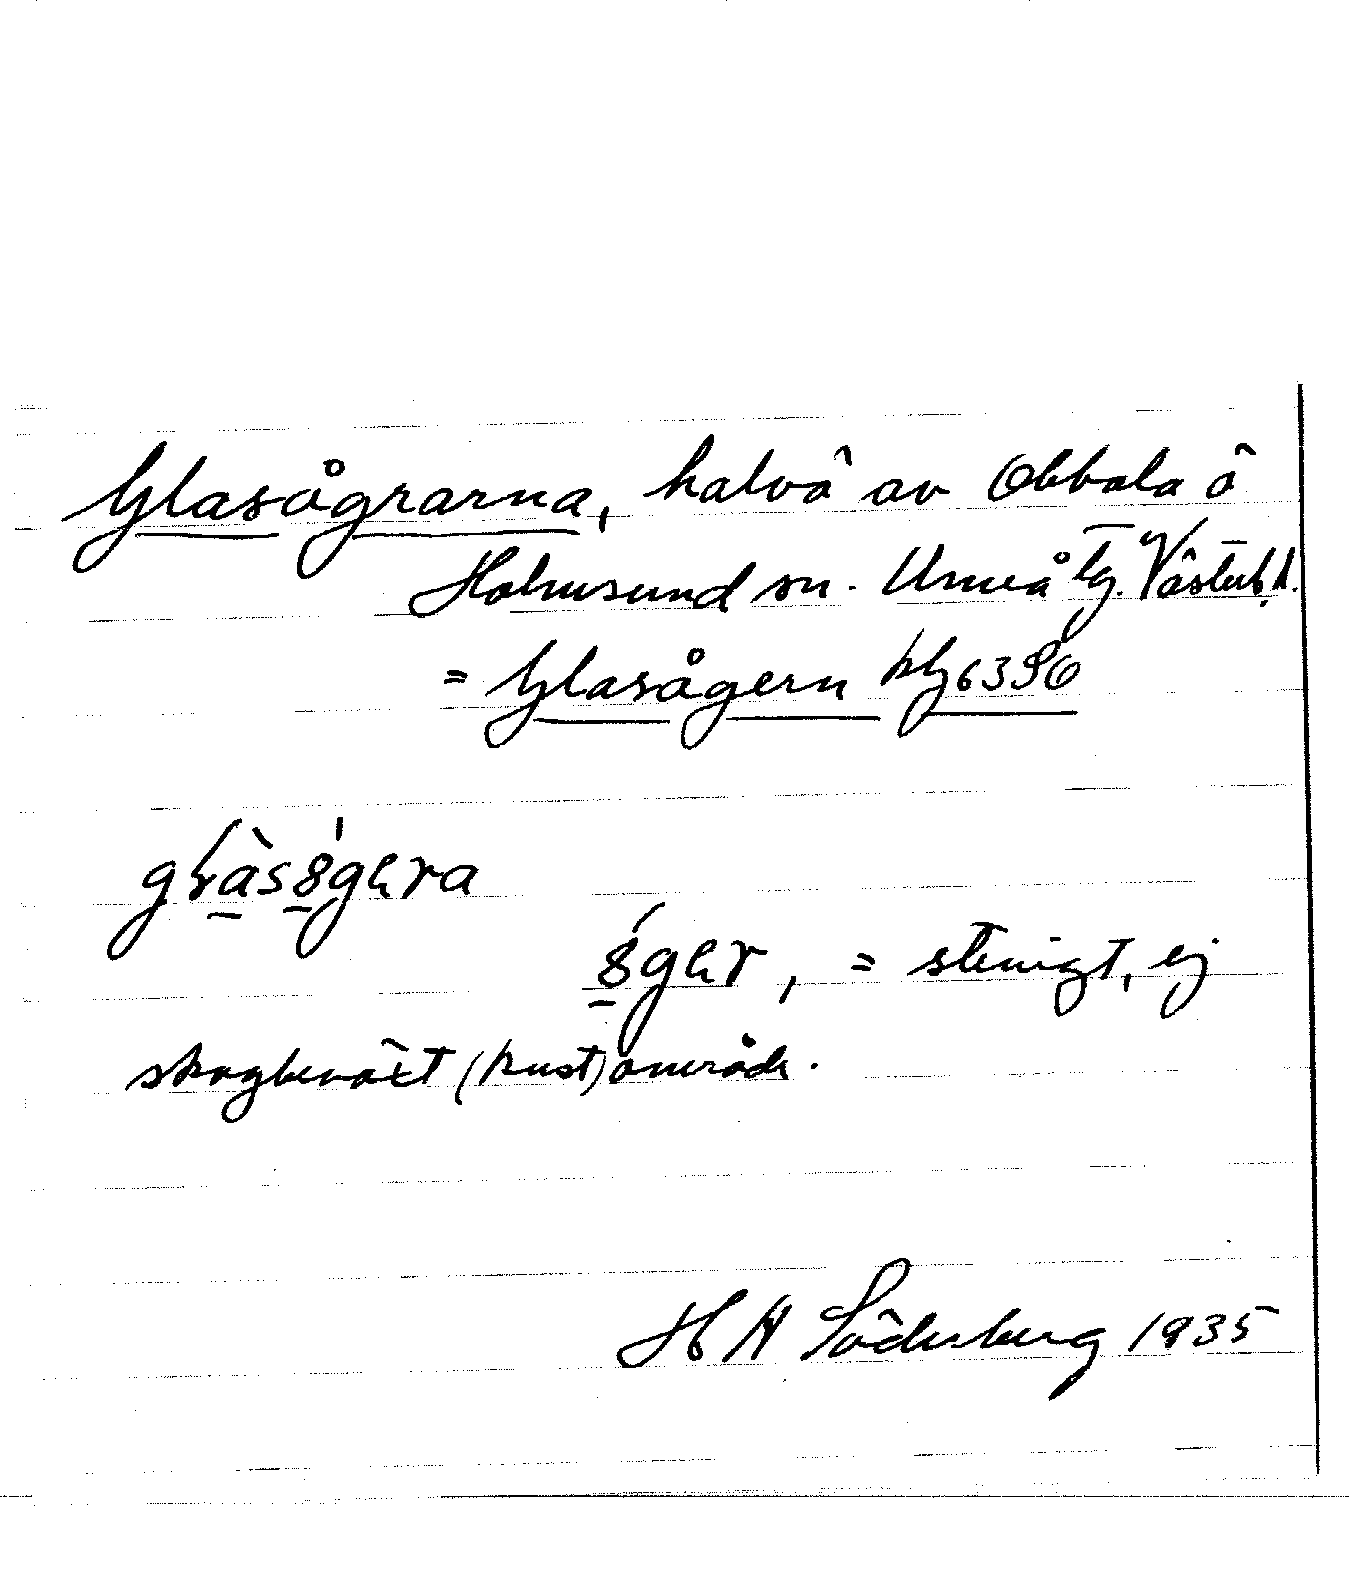 Glasågrarna, halvö av Obbola ö
Holmsund sn. Umeå tg. Västerb. l.
= Glasågern plg 6396
stenigt, ej
skogbeväxt (kust)område.
H H Söderberg 1935